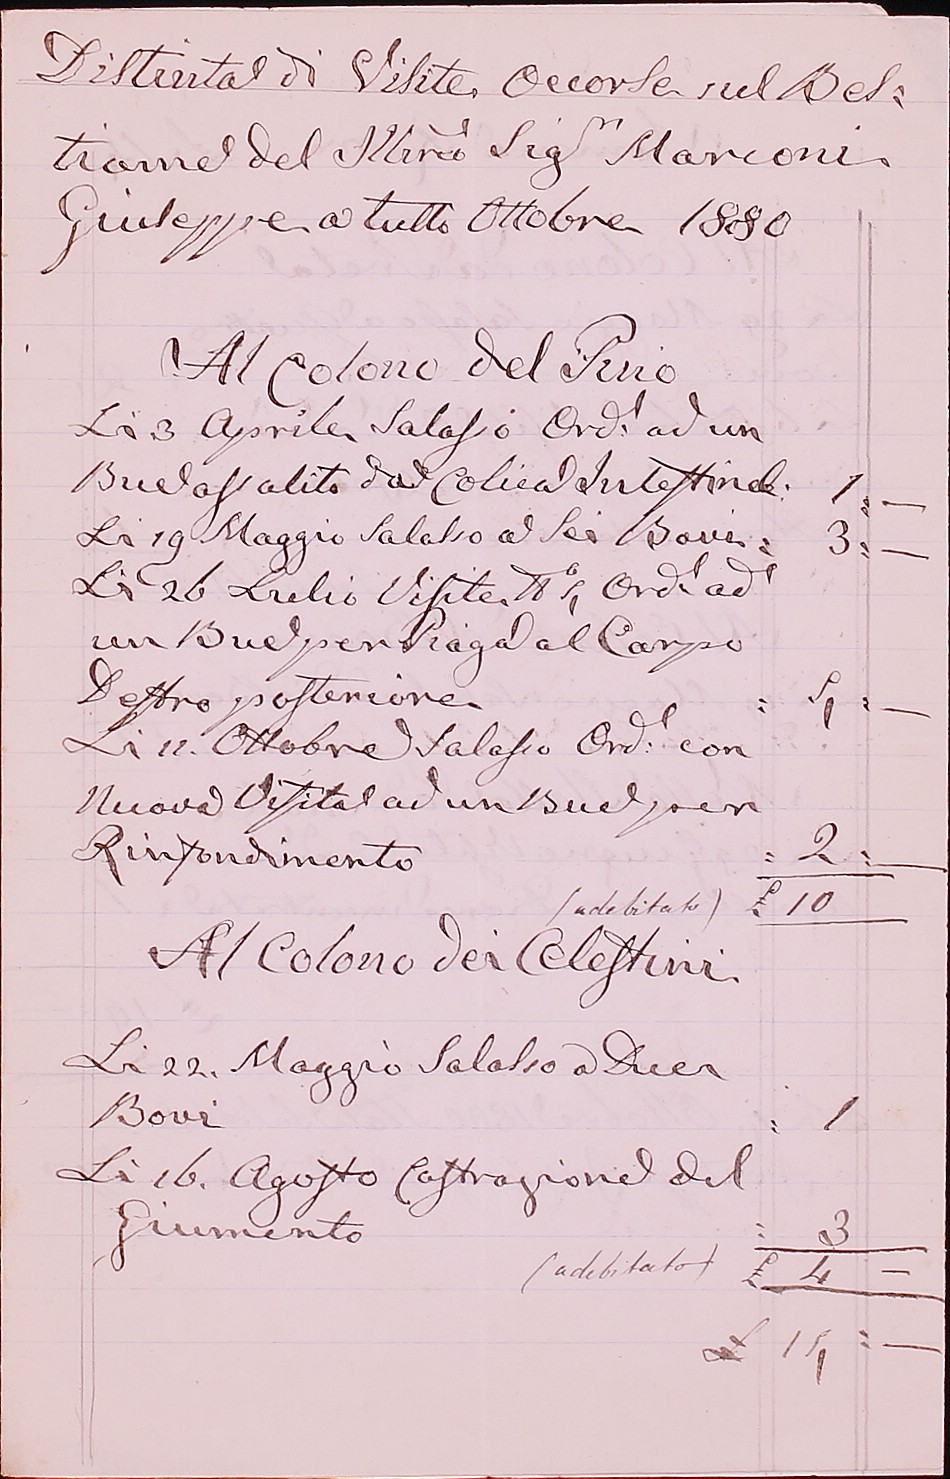 Distinta di Visite Occorse sul Bes:
tiame del Illmo Sigr Marconi
Giuseppe a tutto Ottobre 1880
Al Colono del Pino
Li 3 Aprile Salasso Ord: ad un
Bue assalito da Colica Intestinale: 1 : —
Li 19 Maggio Salasso a Sei Bovi : 3 : —
Li 26 Lulio Visite N° 4 Ord: ad
un Bue per Piaga al Carpo
Destro posteriore : 4 : —
Li 11. Ottobre Salasso Ord: con
Nuova Visita ad un Bue per
Rinfondimento : 2 : —
(adebitato) £ 10
Al Colono dei Celestini
Li 22. Maggio Salasso a Due
Bovi : 1
Li 16. Agosto Castrazione del
Giumento : 3
(adebitato) £ 4 —
£ 14 : —